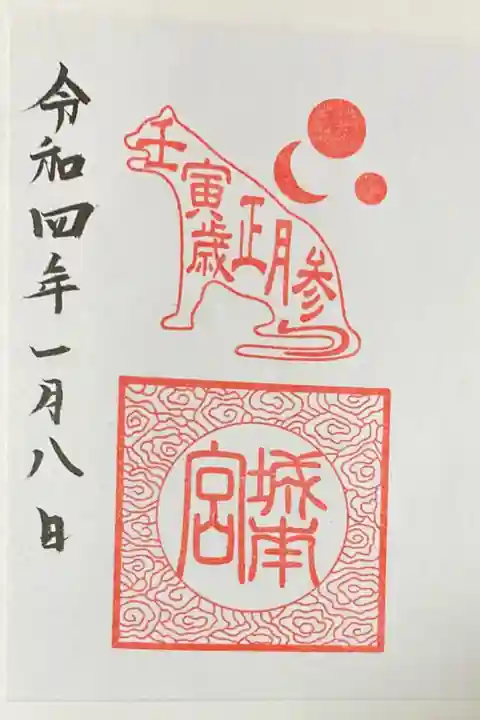 令和四年一月八日
壬寅歳正月参
城南宮